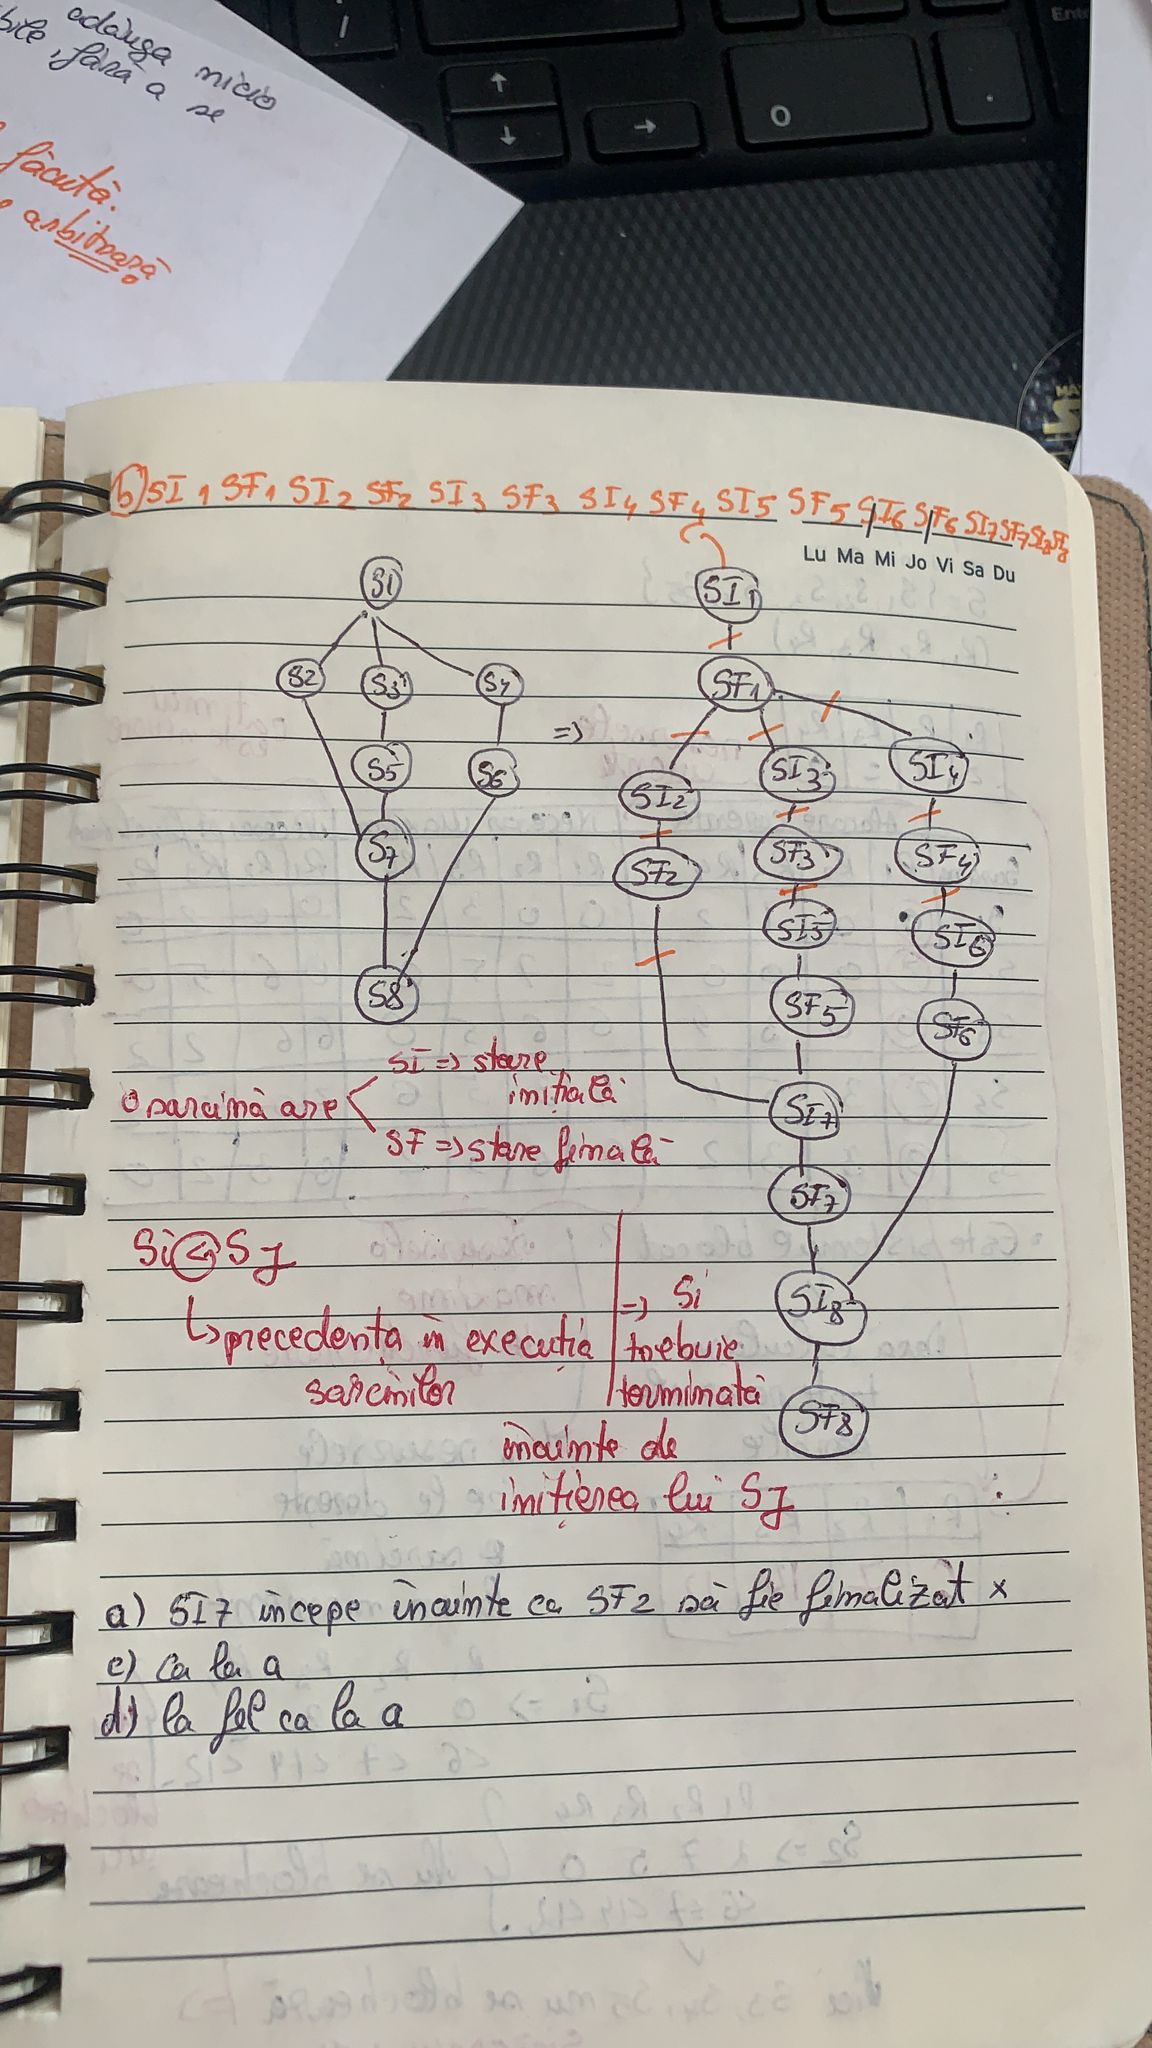 adăuga nicio
bile, fără a se
făcută.
arbitrară
b) SI1 SF1 SI2 SF2 SI3 SF3 SI4 SF4 SI5 SF5 SI6 SF6 SI7 SF7 SI8 SF8
Lu Ma Mi Jo Vi Sa Du
S1
SI1
S2 S3 S4
SF1
=>
S5 S6
SI2 SI3 SI4
S7
SF2 SF3 SF4
SI5 SI6
S8
SF5 SF6
O sarcină are
SI => stare inițială
SF => stare finală
SI7
SF7
Si < Sj
precedența în execuția
sarcinilor
=> Si
trebuie
terminată
înainte de
inițierea lui Sj
SI8
SF8
a) SI7 începe înainte ca SF2 să fie finalizat x
c) ca la a
d) la fel ca la a